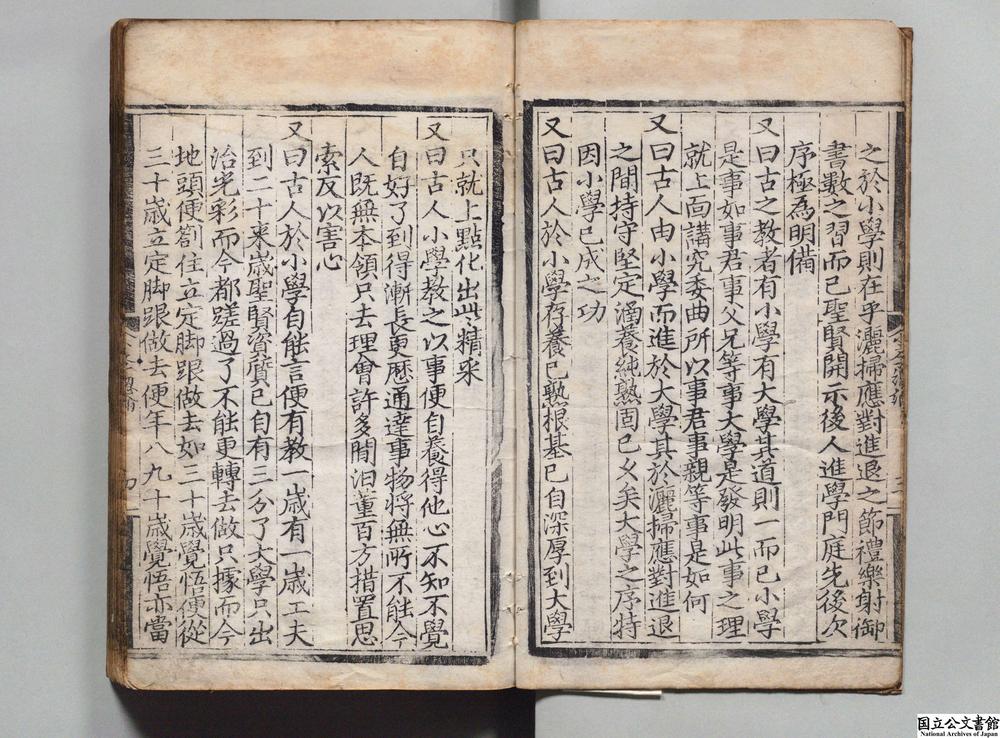 之於小學則在乎灑掃應對進退之節禮樂射御
書數之習而已聖賢開示後人進學門庭先後次
序極為明備
又曰古之教者有小學有大學其道則一而已小學
是事如事君事父兄等事大學是發明此事之理
就上面講究委曲所以事君事親等事是如何
又曰古人由小學而進於大學其於灑掃應對進退
之間持守堅定涵養純熟固已久矣大學之序特
因小學已成之功
又曰古人於小學存養已熟根基已自深厚到大學
只就上點化出些精采
又曰古人小學教之以事便自養得他心不知不覺
自好了到得漸長更歷通達事物將無所不能今
人既無本領只去理會許多閒汨董百方措置思
索反以害心
又曰古人於小學自能言便有教一歲有一歲工夫
到二十來歲聖賢資質已自有三分了大學只出
治光彩而今都蹉過了不能更轉去做只據而今
地頭便劄住立定脚跟做去如三十歲覺悟便從
三十歲立定脚跟做去便年八九十歲覺悟亦當
国立公文書館
National Archives of Japan